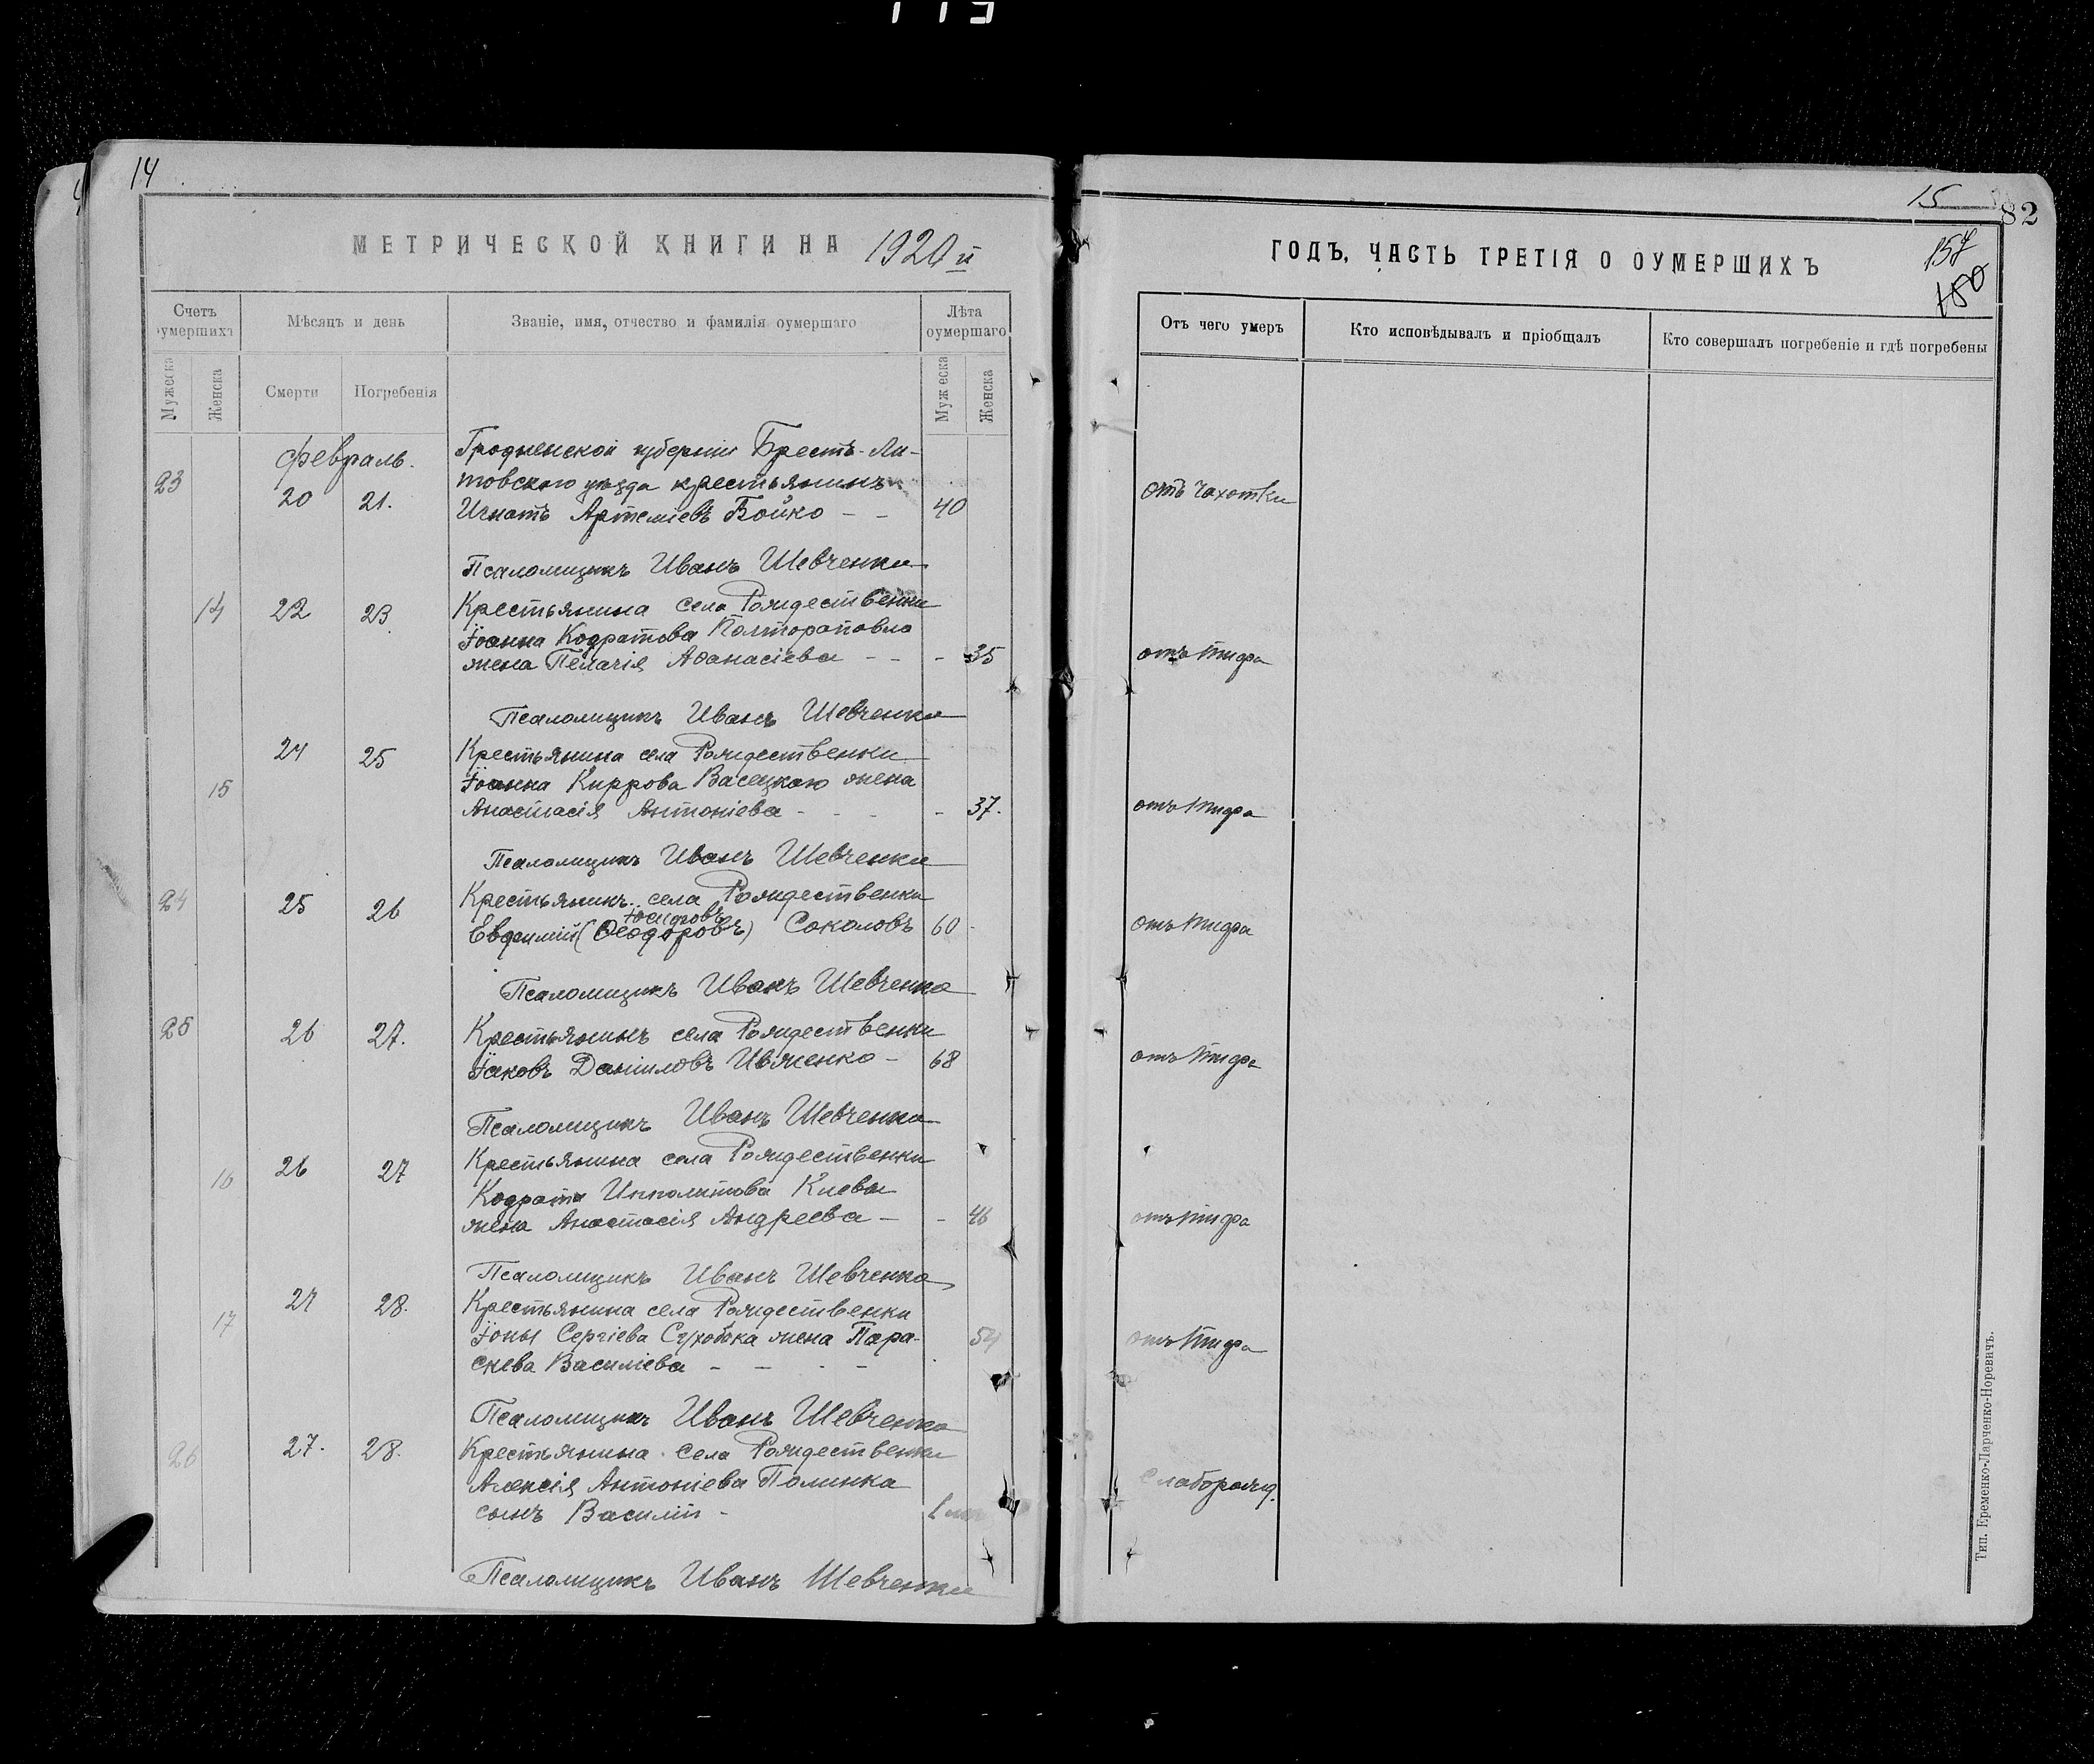 14
МЕТРИЧЕСКОЙ КНИГИ НА 1920 й
Счетъ оумершихъ
Мѣсяцъ и день
Званіе, имя, отчество и фамилія оумершаго
Лѣта оумершаго
Мужеска
Женска
Смерти
Погребенія
Мужеска
Женска
Февраль.
Гродненской губерніи Брестъ-Ли-
23 20 21.
товского уѣзда крестьянинъ
Игнатъ Артеміевъ Бойко - - 40
Псаломщикъ Иванъ Шевченко
14 22 23
Крестьянина села Рождественки
Іоанна Кодратова
жена Пелагія Аѳанасіева - - - 35
Псаломщикъ Иванъ Шевченко
24 25
Крестьянина села Рождественки
15
Іоанна Киррова Васецкаго жена
Анастасія Антоніева - - - - 37.
Псаломщикъ Иванъ Шевченко
24 25 26
Крестьянинъ села Рождественки
Евфимій (Ѳеодоровъ) Соколовъ 60
Псаломщикъ Иванъ Шевченко
25 26 27.
Крестьянинъ села Рождественки
Іаковъ Даніиловъ Ивженко - 68
Псаломщикъ Иванъ Шевченко
16 26 27
Крестьянина села Рождественки
Кодрата Ипполитова
жена Анастасія Андреева - - 46
Псаломщикъ Иванъ Шевченко
17 27 28.
Крестьянина села Рождественки
Іоны Сергіева жена Пара- 54
скева Василіева - - - -
Псаломщикъ Иванъ Шевченко
26 27. 28.
Крестьянина села Рождественки
Алексія Антоніева Полинка
сынъ Василій -
Псаломщикъ Иванъ Шевченко
15
82
ГОДЪ, ЧАСТЬ ТРЕТІЯ О ОУМЕРШИХЪ
157
150
Отъ чего умеръ
Кто исповѣдывалъ и пріобщалъ
Кто совершалъ погребеніе и гдѣ погребены
отъ чахотки
отъ тифа
отъ тифа
отъ тифа
отъ тифа
отъ тифа
отъ тифа
Слаборожд.
Тип. Еременко-Ларченко-Норевичъ.